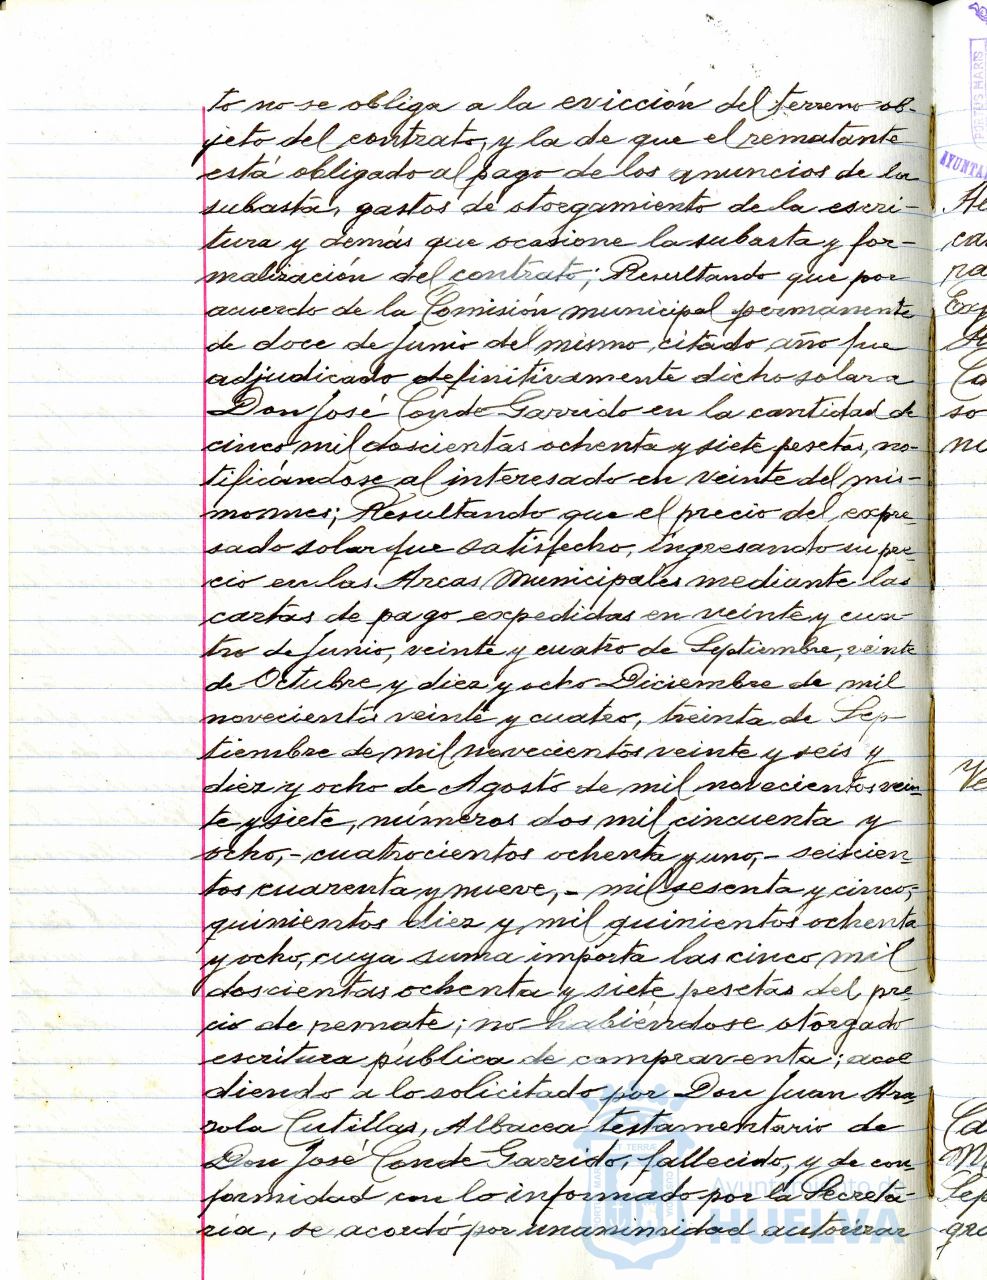 to no se obliga a la evicción del terreno ob-
jeto del contrato, y la de que el rematante
está obligado al pago de los anuncios de la
subasta, gastos de otorgamiento de la escri-
tura y demás que ocasione la subasta y for-
malización del contrato; Resultando que por
acuerdo de la Comisión municipal permanente
de doce de Junio del mismo citado año fue
adjudicado definitivamente dicho solar a
Don José Conde Garrido en la cantidad de
cinco mil doscientas ochenta y siete pesetas, no-
tificándose al interesado en veinte del mis-
mo mes; Resultando que el precio del expre-
sado solar fue satisfecho, ingresando su pre-
cio en las Arcas Municipales mediante las
cartas de pago expedidas en veinte y cua-
tro de Junio, veinte y cuatro de Septiembre, veinte
de Octubre y diez y ocho Diciembre de mil
novecientos veinte y cuatro, treinta de Sep-
tiembre de mil novecientos veinte y seis y
diez y ocho de Agosto de mil novecientos vein-
te y siete, números dos mil cincuenta y
ocho,- cuatrocientos ochenta y uno,- seiscien-
tos cuarenta y nueve,- mil sesenta y cinco,-
quinientos diez y mil quinientos ochenta
y ocho, cuya suma importa las cinco mil
doscientas ochenta y siete pesetas del pre-
cio de remate; no habiéndose otorgado
escritura pública de compraventa; acce
diendo a lo solicitado por Don Juan
Cutillas, Albacea testamentario de
Don José Conde Garrido, fallecido, y de con
formidad con lo informado por la Secreta-
ría, se acordó por unanimidad autorizar
Ayuntamiento de
HUELVA
PORTUS MARIS
AYUNTA